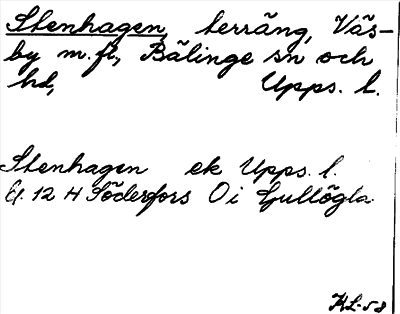 Stenhagen, terräng, Väs-
by m.fl., Bälinge sn och
hd, Upps. l.
Stenhagen ek Upps. l.
Bl. 12 H Söderfors O i Gullögla
KL-58